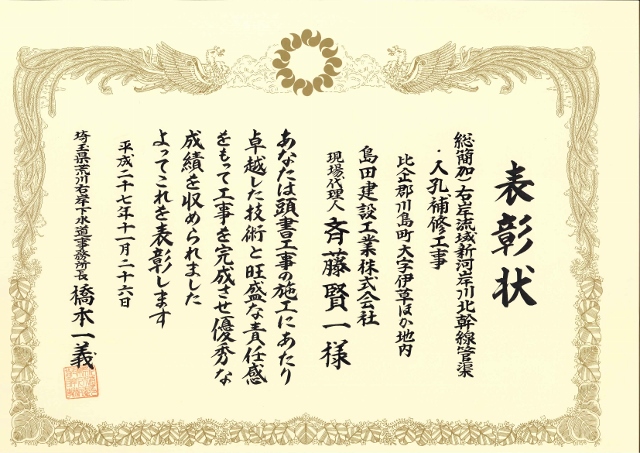 表彰状
総簡加)右岸流域新河岸川北幹線管渠
・人孔補修工事
比企郡川島町大字伊草ほか地内
島田建設工業株式会社
現場代理人 斉藤賢一様
あなたは頭書工事の施工にあたり
卓越した技術と旺盛な責任感
をもって工事を完成させ優秀な
成績を収められました
よってこれを表彰します
平成二十七年十一月二十六日
埼玉県荒川右岸下水道事務所長 橋本一義